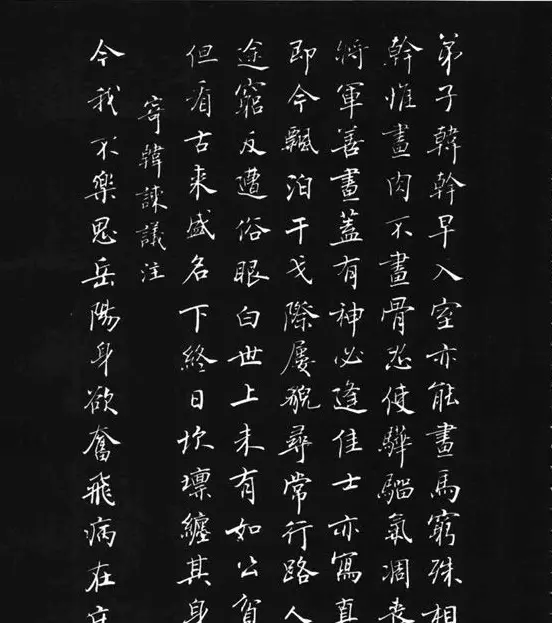 弟子韓幹早入室亦能畫馬窮殊相
幹惟畫肉不畫骨忍使驊騮氣凋喪
將軍善畫蓋有神必逢佳士亦寫真
即今飄泊干戈際屢貌尋常行路人
途窮反遭俗眼白世上未有如公貧
但看古来盛名下終日坎壈纏其身
寄韓諫議注
今我不樂思岳陽身欲奮飛病在床